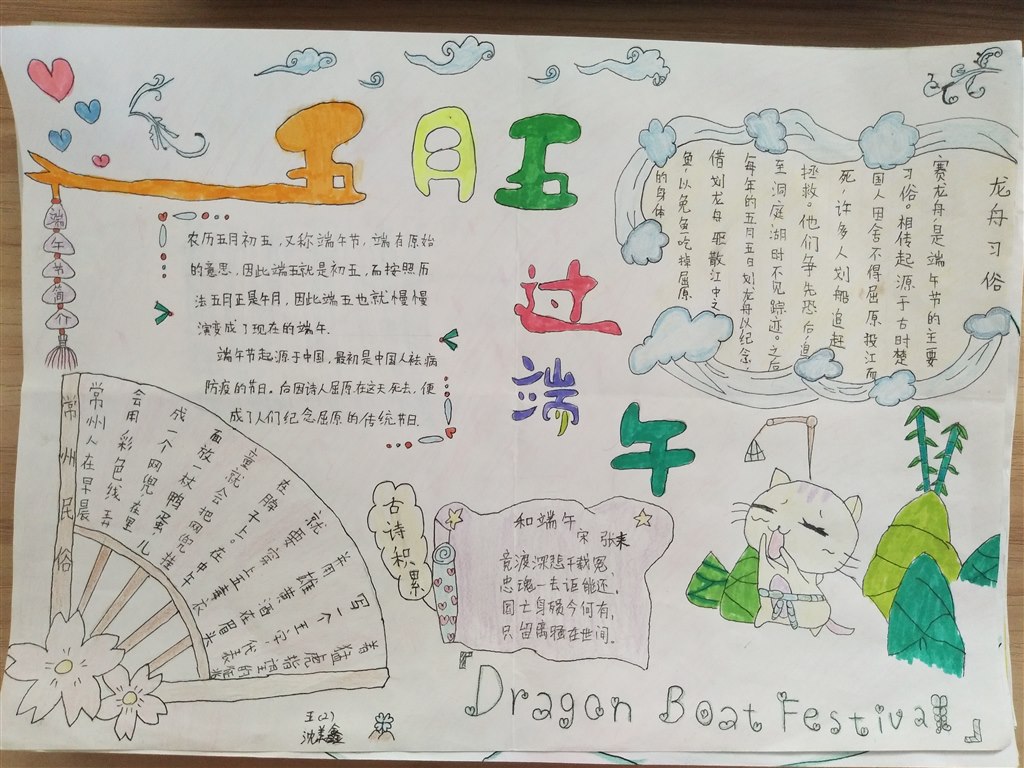 五月五
过
端
午
端午节简介
农历五月初五,又称端午节,端有原始
的意思,因此端五就是初五,而按照历
法五月正是午月,因此端五也就慢慢
演变成了现在的端午.
端午节起源于中国,最初是中国人祛病
防疫的节日.后因诗人屈原在这天死去,便
成了人们纪念屈原的传统节日.
龙舟习俗
赛龙舟是端午节的主要
习俗。相传起源于古时楚
国人因舍不得屈原投江而
死,许多人划船追赶
拯救。他们争先恐后,追
至洞庭湖时不见踪迹。之后
每年的五月五日划龙舟以纪念.
借划龙舟驱散江中之
鱼,以免鱼吃掉屈原
的身体
常州民俗
常州人在早晨
会用彩色线弄
成一个网兜,在里
面放一枚鸭蛋,儿
童就会把网兜挂
在脖子上。在中午
就要穿上五毒衣
并用雄黄酒在眉头
写一个王字,代表
着猛虎
古诗积累
和端午
宋 张耒
竞渡深悲千载冤,
忠魂一去讵能还.
国亡身殒今何有,
只留离骚在世间.
『Dragon Boat Festival』
五(2)